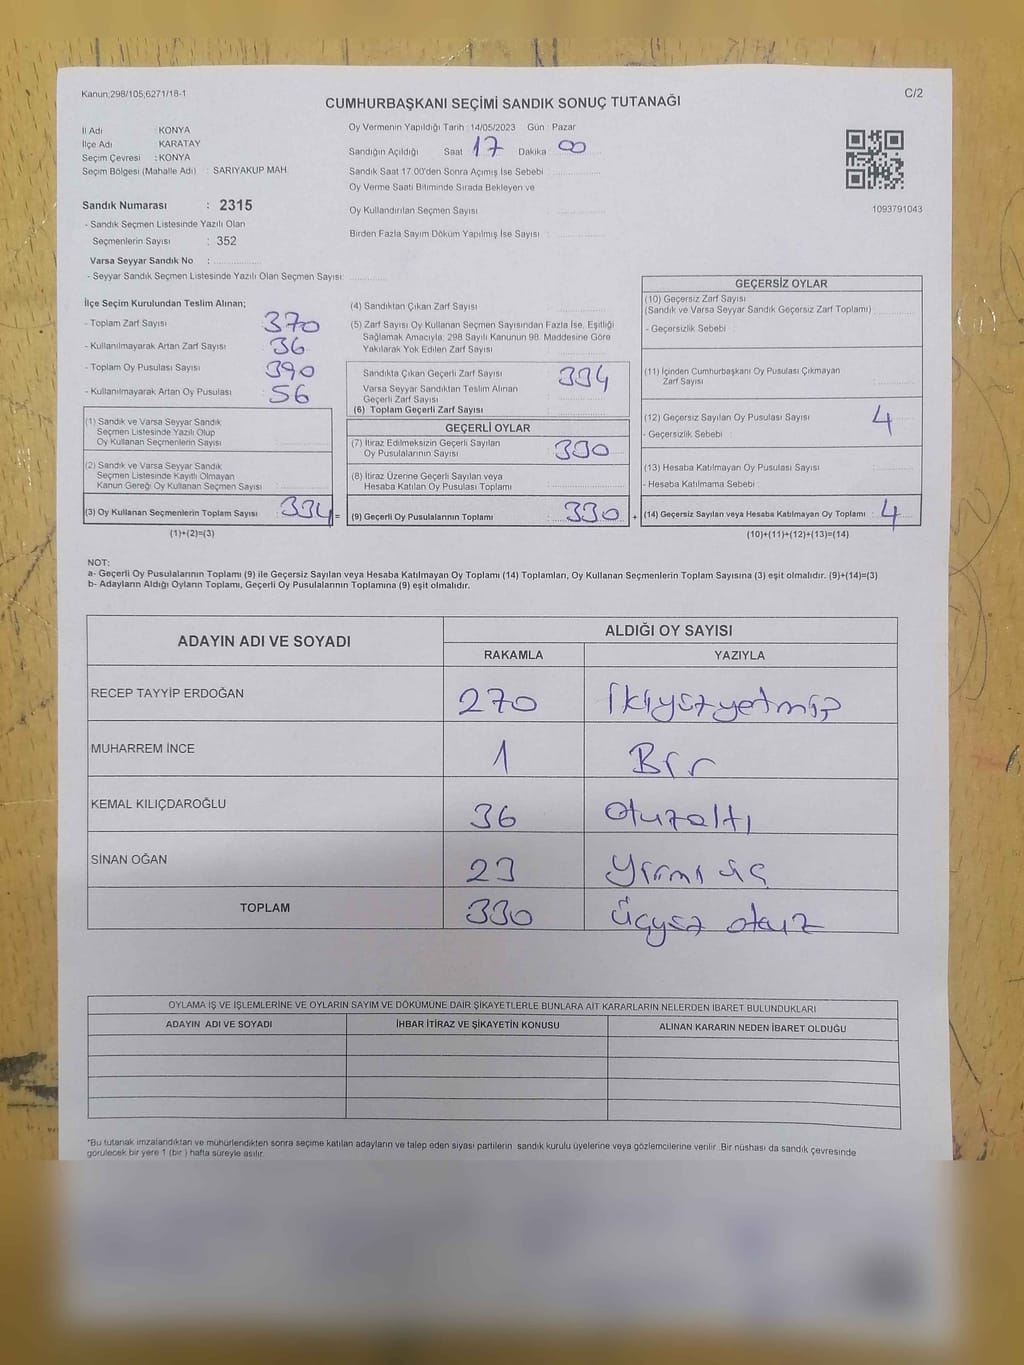 Kanun;298/105;6271/18-1
C/2
CUMHURBAŞKANI SEÇİMİ SANDIK SONUÇ TUTANAĞI
İl Adı : KONYA
İlçe Adı : KARATAY
Seçim Çevresi : KONYA
Seçim Bölgesi (Mahalle Adı) : SARIYAKUP MAH.
Sandık Numarası : 2315
- Sandık Seçmen Listesinde Yazılı Olan
Seçmenlerin Sayısı : 352
Varsa Seyyar Sandık No :
- Seyyar Sandık Seçmen Listesinde Yazılı Olan Seçmen Sayısı:
Oy Vermenin Yapıldığı Tarih : 14/05/2023 Gün : Pazar
Sandığın Açıldığı Saat 17 Dakika : 00
Sandık Saat 17.00'den Sonra Açımış İse Sebebi :
Oy Verme Saati Bitiminde Sırada Bekleyen ve
Oy Kullandırılan Seçmen Sayısı :
Birden Fazla Sayım Döküm Yapılmış İse Sayısı :
1093791043
İlçe Seçim Kurulundan Teslim Alınan;
- Toplam Zarf Sayısı : 370
- Kullanılmayarak Artan Zarf Sayısı : 36
- Toplam Oy Pusulası Sayısı : 390
- Kullanılmayarak Artan Oy Pusulası : 56
(1) Sandık ve Varsa Seyyar Sandık
Seçmen Listesinde Yazılı Olup
Oy Kullanan Seçmenlerin Sayısı :
(2) Sandık ve Varsa Seyyar Sandık
Seçmen Listesinde Kayıtlı Olmayan
Kanun Gereği Oy Kullanan Seçmen Sayısı :
(3) Oy Kullanan Seçmenlerin Toplam Sayısı : 334 =
(1)+(2)=(3)
(4) Sandıktan Çıkan Zarf Sayısı :
(5) Zarf Sayısı Oy Kullanan Seçmen Sayısından Fazla İse, Eşitliği
Sağlamak Amacıyla; 298 Sayılı Kanunun 98. Maddesine Göre
Yakılarak Yok Edilen Zarf Sayısı :
Sandıkta Çıkan Geçerli Zarf Sayısı : 334
Varsa Seyyar Sandıktan Teslim Alınan
Geçerli Zarf Sayısı :
(6) Toplam Geçerli Zarf Sayısı :
GEÇERLİ OYLAR
(7) İtiraz Edilmeksizin Geçerli Sayılan
Oy Pusulalarının Sayısı : 330
(8) İtiraz Üzerine Geçerli Sayılan veya
Hesaba Katılan Oy Pusulası Toplamı :
(9) Geçerli Oy Pusulalarının Toplamı : 330 +
GEÇERSİZ OYLAR
(10) Geçersiz Zarf Sayısı
(Sandık ve Varsa Seyyar Sandık Geçersiz Zarf Toplamı) :
- Geçersizlik Sebebi :
(11) İçinden Cumhurbaşkanı Oy Pusulası Çıkmayan
Zarf Sayısı :
(12) Geçersiz Sayılan Oy Pusulası Sayısı : 4
- Geçersizlik Sebebi :
(13) Hesaba Katılmayan Oy Pusulası Sayısı :
- Hesaba Katılmama Sebebi :
(14) Geçersiz Sayılan veya Hesaba Katılmayan Oy Toplamı : 4
(10)+(11)+(12)+(13)=(14)
NOT:
a- Geçerli Oy Pusulalarının Toplamı (9) ile Geçersiz Sayılan veya Hesaba Katılmayan Oy Toplamı (14) Toplamları, Oy Kullanan Seçmenlerin Toplam Sayısına (3) eşit olmalıdır. (9)+(14)=(3)
b- Adayların Aldığı Oyların Toplamı, Geçerli Oy Pusulalarının Toplamına (9) eşit olmalıdır.
ADAYIN ADI VE SOYADI
ALDIĞI OY SAYISI
RAKAMLA YAZIYLA
RECEP TAYYİP ERDOĞAN 270 İkiyüzyetmiş
MUHARREM İNCE 1 Bir
KEMAL KILIÇDAROĞLU 36 otuzaltı
SİNAN OĞAN 23 yirmi üç
TOPLAM 330 üçyüz otuz
OYLAMA İŞ VE İŞLEMLERİNE VE OYLARIN SAYIM VE DÖKÜMÜNE DAİR ŞİKAYETLERLE BUNLARA AİT KARARLARIN NELERDEN İBARET BULUNDUKLARI
ADAYIN ADI VE SOYADI İHBAR İTİRAZ VE ŞİKAYETİN KONUSU ALINAN KARARIN NEDEN İBARET OLDUĞU
*Bu tutanak imzalandıktan ve mühürlendikten sonra seçime katılan adayların ve talep eden siyasi partilerin sandık kurulu üyelerine veya gözlemcilerine verilir. Bir nüshası da sandık çevresinde
görülecek bir yere 1 (bir) hafta süreyle asılır.